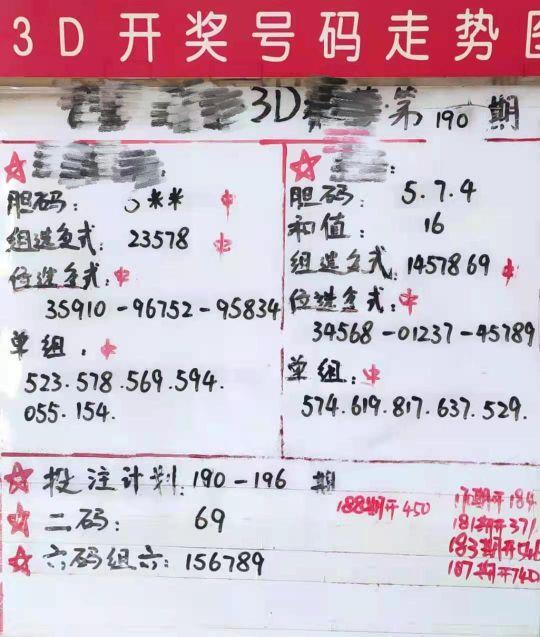 3D开奖号码走势图
3D 第190期
胆码: **中
组选复式: 23578 中
位选复式: 中
35910-96752-95834
单组: 中
523.578.569.594.
055.154.
胆码: 5.7.4
和值: 16
组选复式: 1457869 中
位选复式: 中
34568-01237-45789
单组: 中
574.619.817.637.529.
投注计划: 190-196 期
二码: 69
六码组六: 156789
188期开450
17期开184
181期开371
183期开546
187期开740